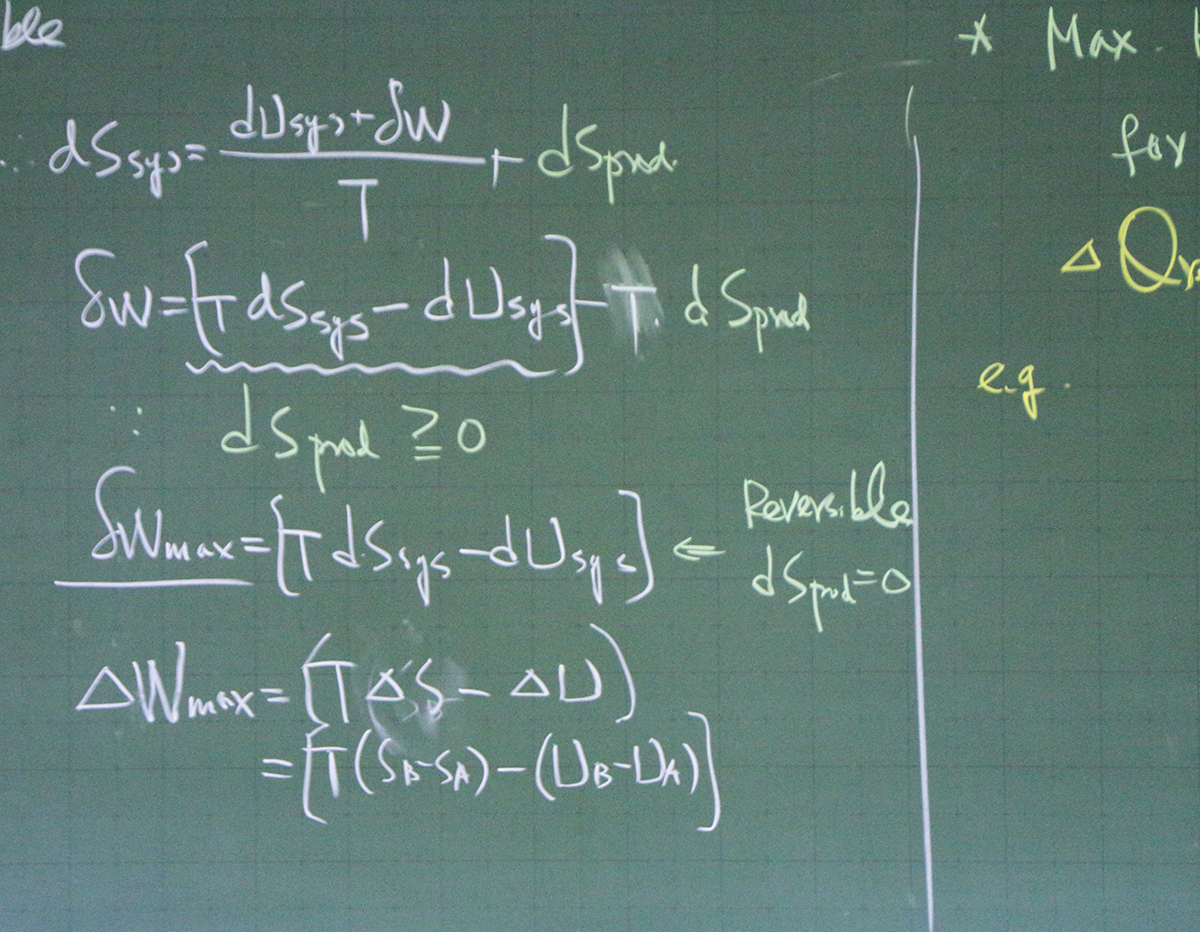 ble
∴ dSsys = (dUsys + δW)/T + dSprod.
δW = [T dSsys - dUsys] - T. dSprod
∵ dSprod ≧ 0
δWmax = [T dSsys - dUsys] ⇐ Reversible
dSprod = 0
ΔWmax = [T ΔS - ΔU]
= [T(SB-SA) - (UB-UA)]
* Max.
for
Δ Q
e.g.